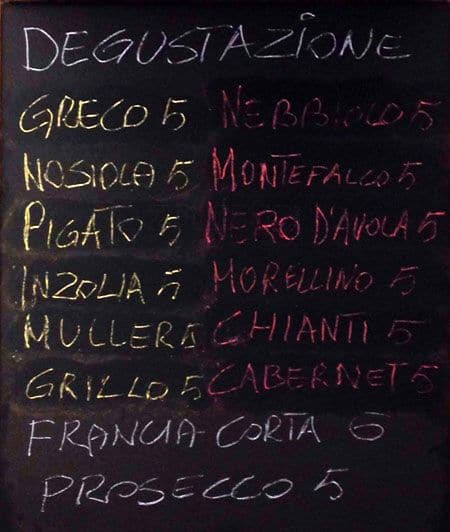 DEGUSTAZIONE
GRECO 5 NEBBIOLO 5
NOSIOLA 5 MONTEFALCO 5
PIGATO 5 NERO D'AVOLA 5
INZOLIA 5 MORELLINO 5
MULLER 5 CHIANTI 5
GRILLO 5 CABERNET 5
FRANCIA-CORTA 6
PROSECCO 5